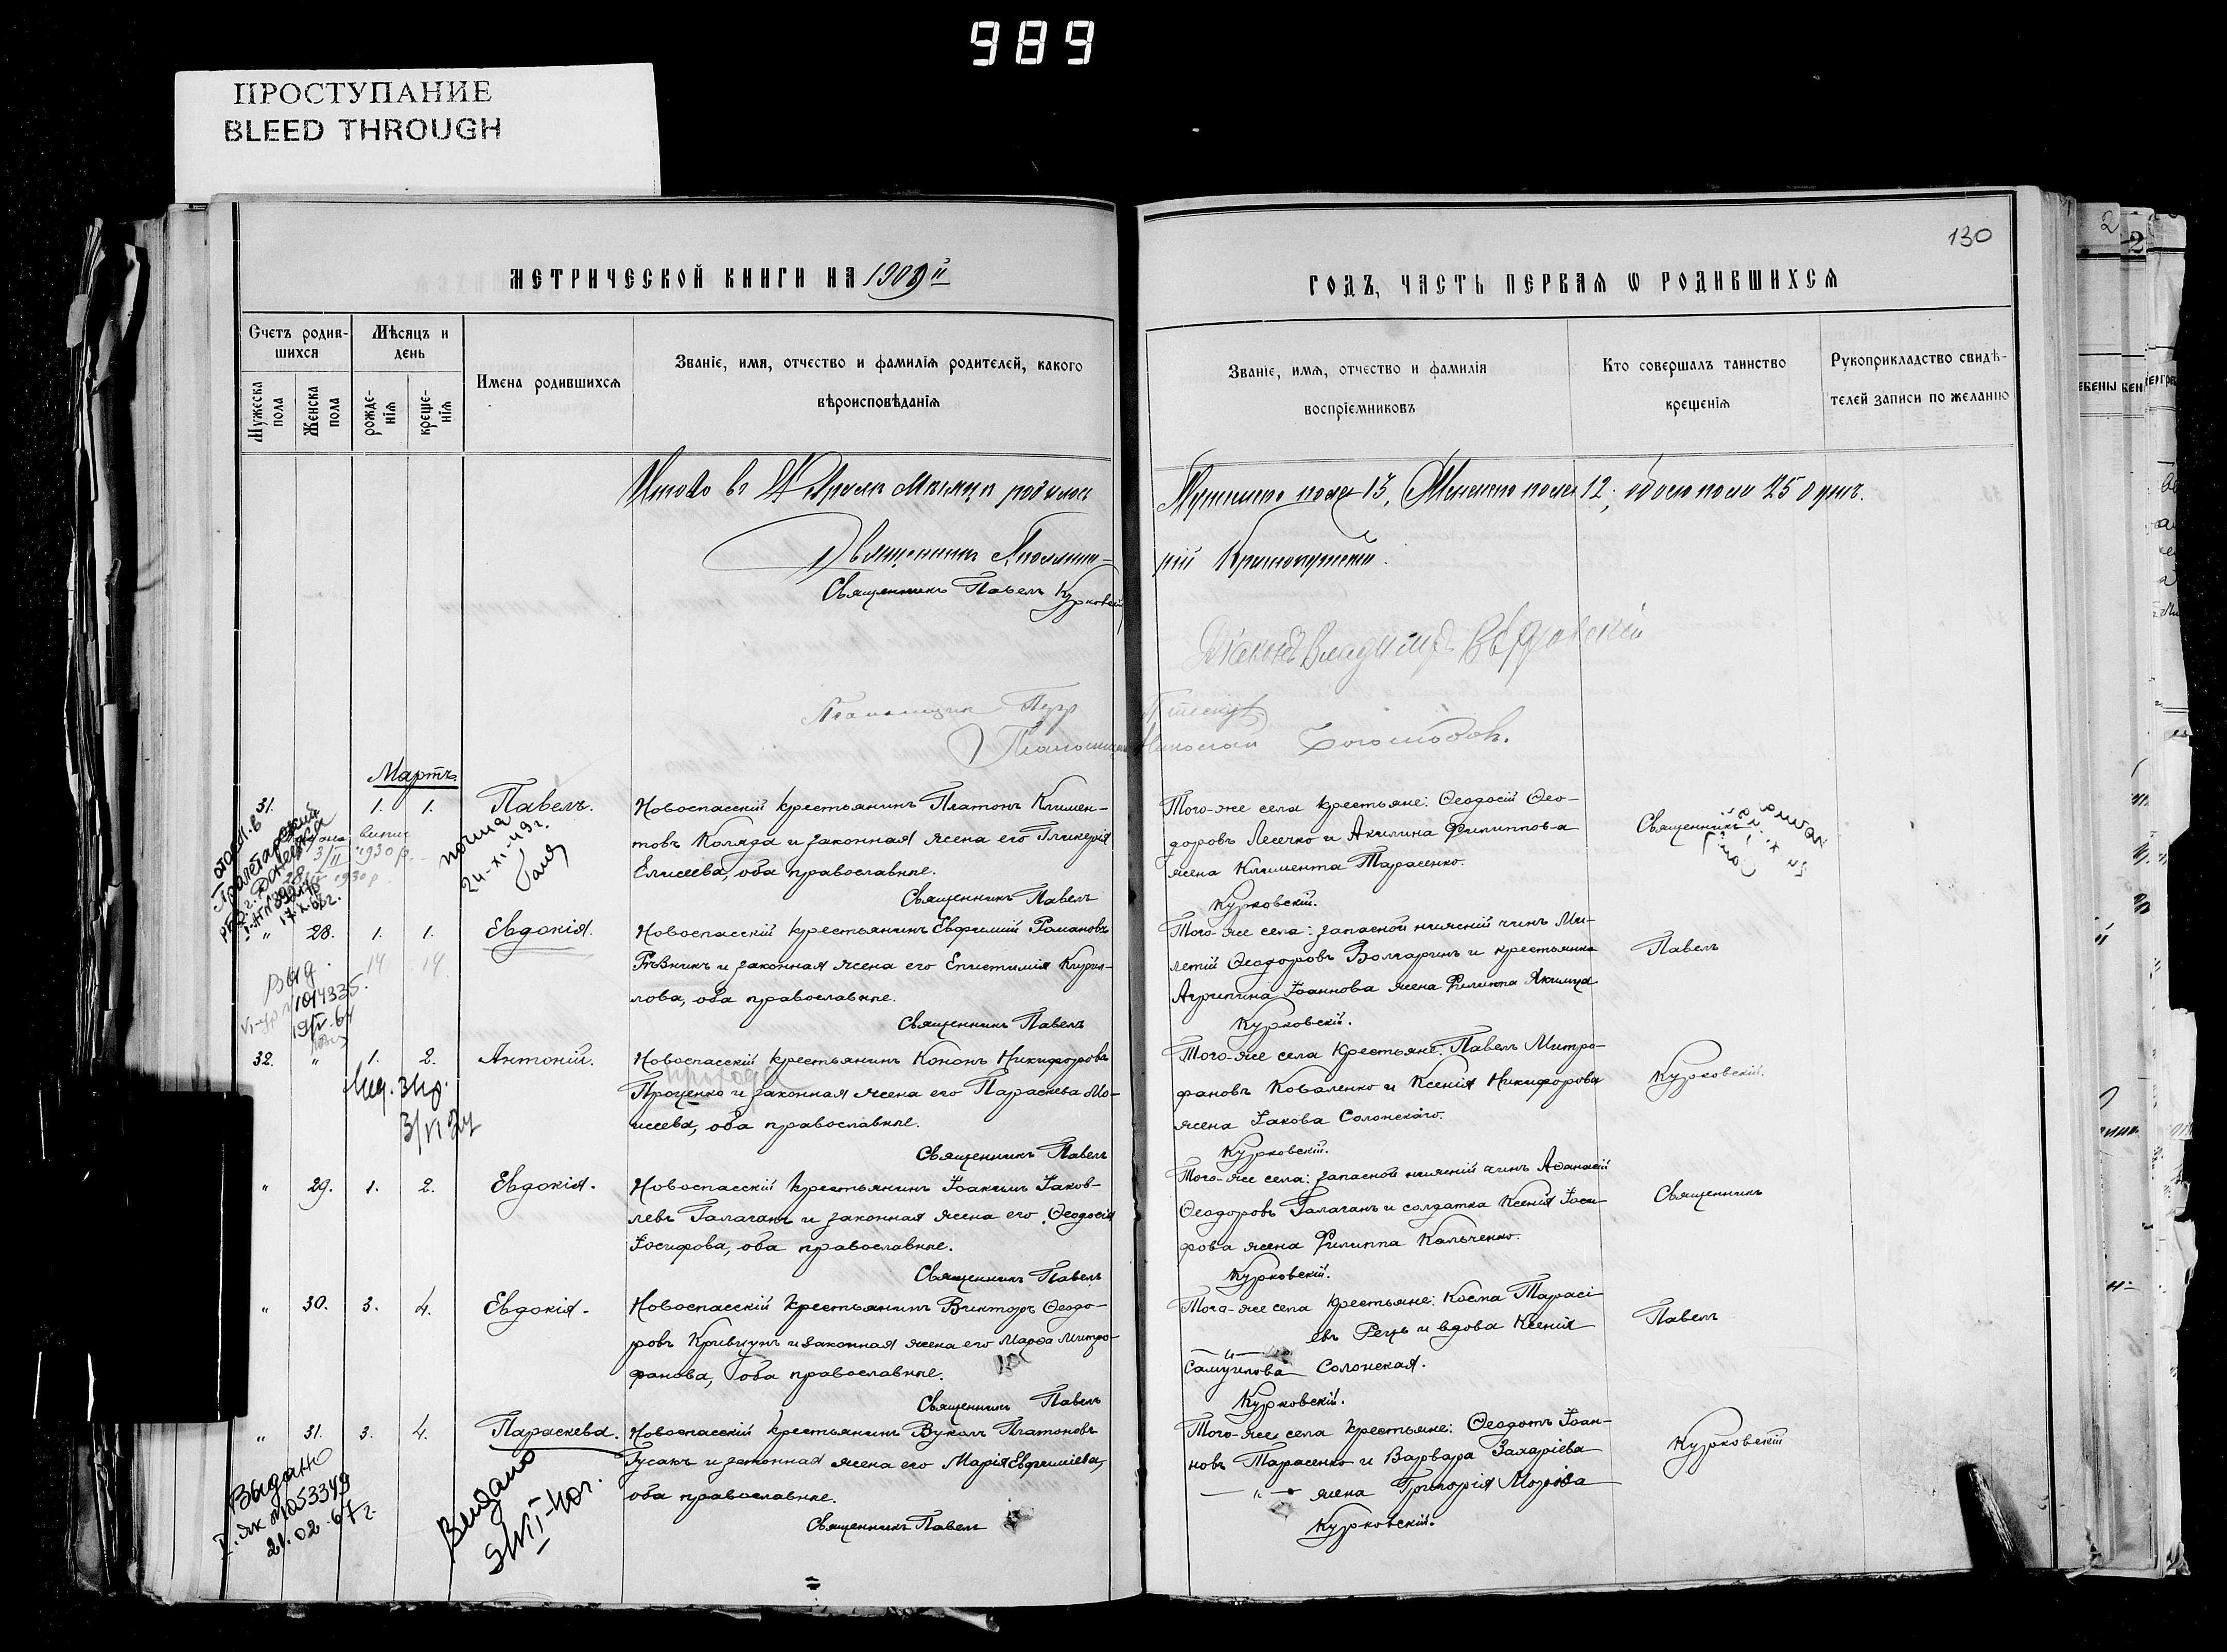 989
ПРОСТУПАНИЕ
BLEED THROUGH
130
МЕТРИЧЕСКОЙ КНИГИ НА 1909й
ГОДЪ, ЧАСТЬ ПЕРВАЯ Ѡ РОДИВШИХСЯ
Счетъ родив-
шихся
Мужеска
пола
Женска
пола
Мѣсяцъ и
день
рожде-
нія
креще-
нія
Имена родившихся
Званіе, имя, отчество и фамилія родителей, какого
вѣроисповѣданія
Званіе, имя, отчество и фамилія
воспріемниковъ
Кто совершалъ таинство
крещенія
Рукоприкладство свидѣ-
телей записи по желанію
Итого въ Февралѣ мѣсяцѣ родилось
Мужеска пола 13, Женска пола 12, обоего пола 25 душъ.
Священникъ
Священникъ Павелъ Курковскій
Діаконъ Владимиръ
Псаломщикъ Петръ
Псаломщикъ Николай
Мартъ
31. 1. 1. Павелъ.
Новоспасскій крестьянинъ Платонъ Климен-
товъ Коляда и законная жена его Гликерія
Елисеева, оба православные.
Священникъ Павелъ
Того-же села крестьяне: Ѳеодосій Ѳео-
доровъ Лесечко и Акилина Филиппова
жена Климента Тарасенко.
Курковскій.
Священникъ
24-XI-49 г.
17.X.68г.
" 28. 1. 1. Евдокія.
14 14
Новоспасскій крестьянинъ Евфимій Романовъ
Рѣзникъ и законная жена его Епистимія Кирил-
лова, оба православные.
Священникъ Павелъ
Того-же села: запасной нижній чинъ Ми-
летій Ѳеодоровъ Болгаринъ и крестьянка
Агрипина Іоаннова жена Филиппа Якимца
Курковскій.
Павелъ
Выд.
1014335.
19/V-64
32. " 1. 2. Антоній.
Новоспасскій крестьянинъ Кононъ Никифоровъ
Проценко и законная жена его Параскева Мо-
исеева, оба православные.
Священникъ Павелъ
Того-же села крестьяне: Павелъ Митро-
фановъ Коваленко и Ксенія Никифорова
жена Іакова Солонскаго.
Курковскій.
Курковскій.
" 29. 1. 2. Евдокія.
Новоспасскій крестьянинъ Іоакимъ Іаков-
левъ Галаганъ и законная жена его Ѳеодосія
Іосифова, оба православные.
Священникъ Павелъ
Того-же села: запасной нижній чинъ Аѳанасій
Ѳеодоровъ Галаганъ и солдатка Ксенія Іоси-
фова жена Филиппа Кальченко.
Курковскій.
Священникъ
" 30. 3. 4. Евдокія.
Новоспасскій крестьянинъ Викторъ Ѳеодо-
ровъ Кривцунъ и законная жена его Марѳа Митро-
фанова, оба православные.
Священникъ Павелъ
Того-же села крестьяне: Косма Тарасі-
евъ Рець и вдова Ксенія
Самуилова Солонская.
Курковскій.
Павелъ
" 31. 3. 4. Параскева.
Новоспасскій крестьянинъ Вуколъ Платоновъ
Гусакъ и законная жена его Марія Евфиміева,
оба православные.
Священникъ Павелъ
Того-же села крестьяне: Ѳеодотъ Іоан-
новъ Тарасенко и Варвара Захаріева
жена Григорія Мороза
Курковскій.
Курковскій
Выдано
21.02.67г.
Выдано